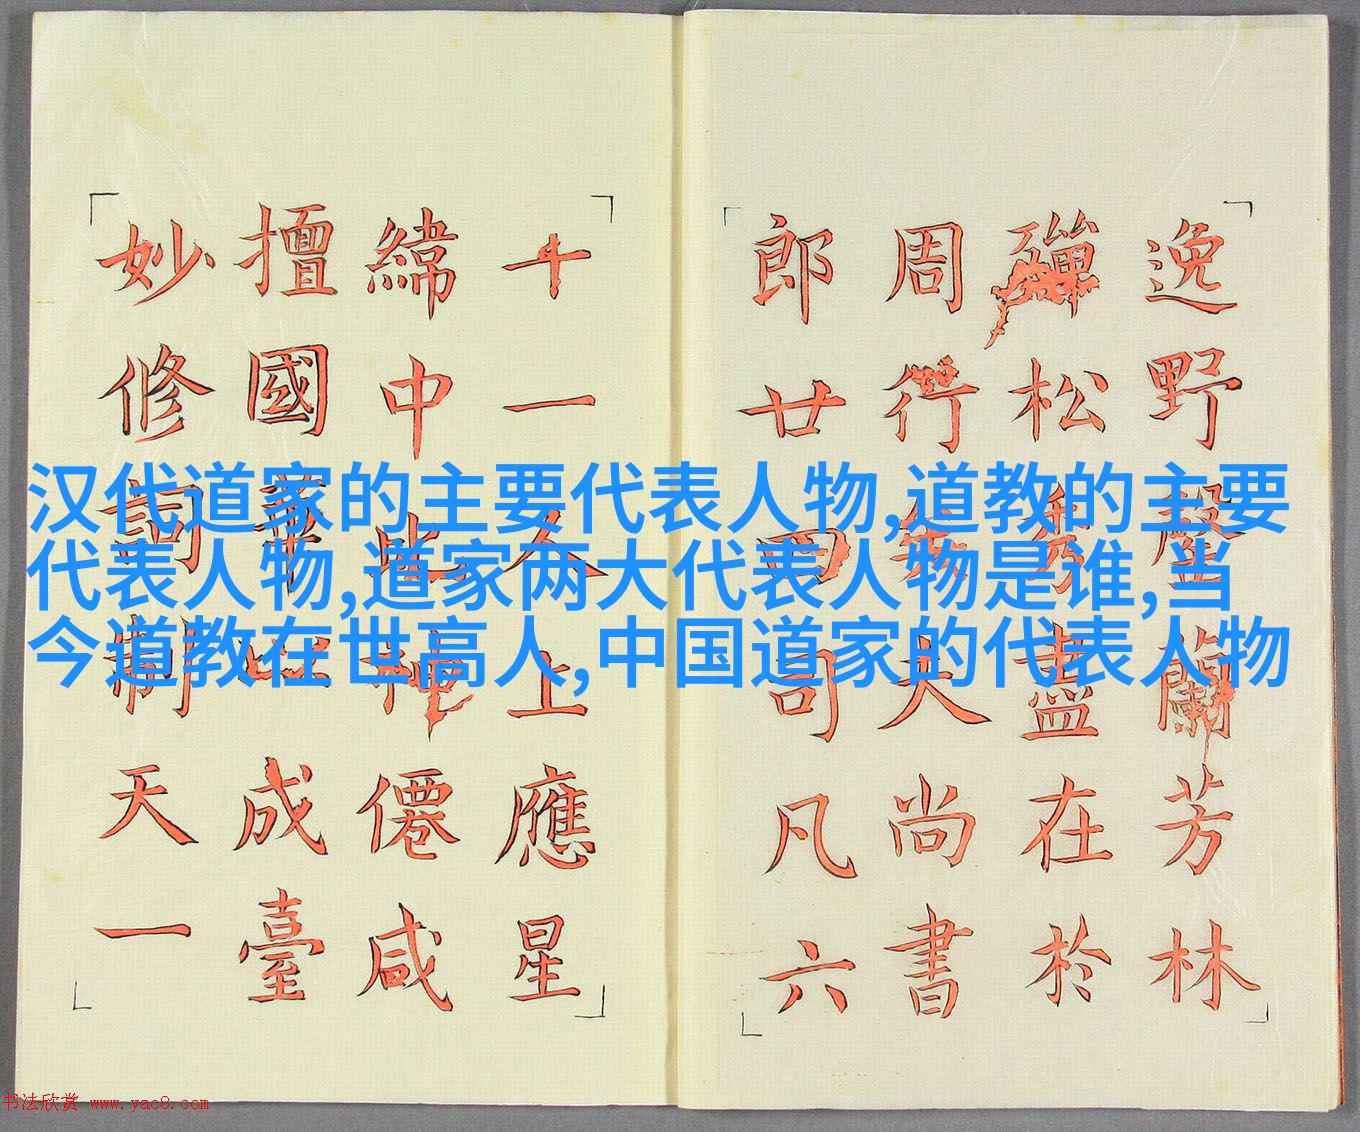 汉代道家的主要代表人物,道教的主要
代表人物,道家两大代表人物是谁,当
今道教在世高人,中国道家的代表人物
逸野蘭芳林
松盡在於
周行大尚書
郎廿四司凡六
十一人上應星
緯中僊咸
擅國成臺
妙修詞制天一
书法欣赏 www.yac8.com